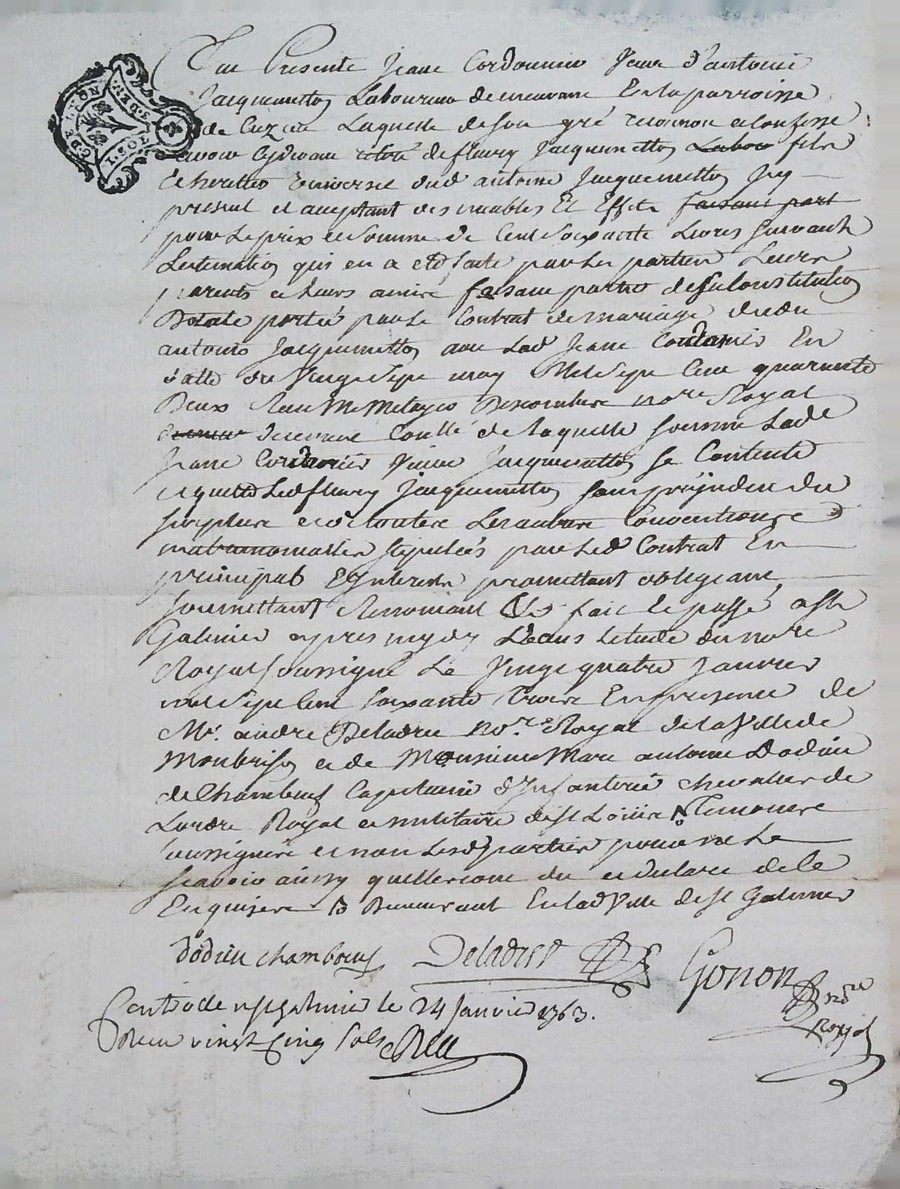 Fut Presente Jeane Cordonnier Veuve d'antoine
Jacquemetton Laboureur demeurant En la parroisse
de Cuzieu Laquelle de son gré reconnoit et confesse
avoir cydevant retiré de fleury Jacquemetton Labour fils
et heritier universel dud antoine Jacquemetton Icy
present et aceptant des meubles Et Effets faisant part
pour Le prix et somme de Cent soixante Livres suivant
Lestimation qui en a eté faite par Les parties Leurs
parents et Leurs amis faisant partie de sa Constitution
Dotale portée par Le Contrat de mariage dudit
antoine Jacquemetton avec Lad Jeane Cordonnier En
datte du Vingt sept may Mil sept Cent quarante
Deux Recu Me no.re Royal
de laquelle somme Lad.e
Jeane Cordonnier Veuve Jacquemetton se Contente
et quitte Led fleury Jacquemetton sans prejudice du
surplus et de toutes Les autres Conventions
matrimonialles stipulées par Led Contrat En
principal Et Interets promettant obligeant
soumettant Renoncant &c fait et passé a St
Galmier apres mydy Dans Letude du no.re
Royal soussigné Le Vingt quatre Janvier
mil sept Cent soixante trois En presence de
Mr. andré Deladret No.re Royal de la Ville de
Montbrison et de Monsieur Marc antoine Dodieu
de Chambeuf Capitaine d'Infanterie chevallier de
Lordre Royal et militaire de St Loüis Temoins
soussignés et non Lesd parties pour ne Le
scavoir ainsy quelles ont dit et declaré de ce
Enquises Demeurant En lad Ville de St Galmier
dodieu chambeuf Deladret Gonon
no.re
Royal
Controllé a St galmier le 24 Janvier 1763.
Recu vingt cinq sols